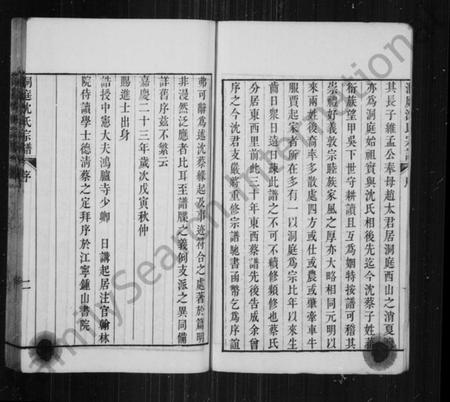 其長子維孟公奉母趙太君居洞庭西山之消夏
亦為洞庭始祖實與沈氏相後先迄今沈蔡子姓蕃
衍族望甲吳下世守耕讀且互為姻特按譜可稽其
崇禮好義敦宗睦族家風之厚亦大略相同元明以
來兩姓後裔率多散處四方或仕或農或肇牽車牛
服賈起家者所在多有一以洞庭為宗比年以來生
齒日衆日遠日疎此譜之不可不續修類修也蔡氏
分居東西里前此三十年東西蔡譜先後告成余曾
序之今沈君支嚴將重修宗譜馳書函幣乞為序誼
弗可辭為述沈蔡緣起及事迹符合之處著於篇明
非漫然泛應者比耳至譜牒之義例支派之異同備
詳舊序茲不繁云
嘉慶二十三年歲次戊寅秋仲
賜進士出身
誥授中憲大夫鴻臚寺少卿 日講起居注官翰林
院侍讀學士德清蔡之定拜序於江寧鍾山書院
洞庭沈氏宗譜 序 二
FamilySearch International